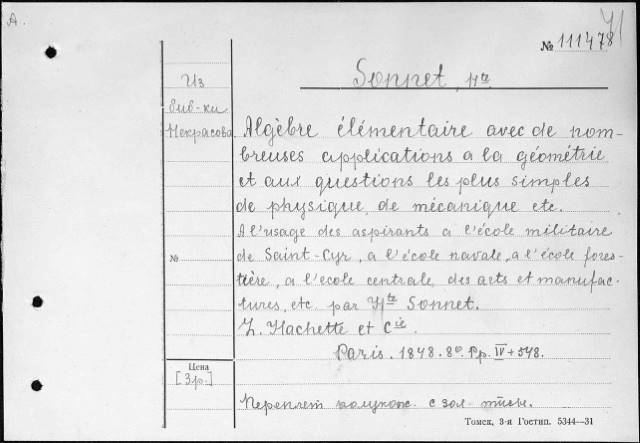 A.
71
№ 111478
Sonnet, Hte
Из
биб-ки
Некрасова
Algèbre élémentaire avec de nom-
breuses applications a la géométrie
et aux questions les plus simples
de physique, de mécanique etc.
A l'usage des aspirants a l'école militaire
de Saint-Cyr, a l'école navale, a l'école fores-
tière, a l'ecole centrale des arts et manufac-
tures, etc. par Hte Sonnet.
L. Hachette et Cie.
Paris. 1848. 8º. Pp. IV + 548.
№
Цена
[3р.]
Переплет полукож. с зол. тисн.
Томск, 3-я Гостип. 5344—31